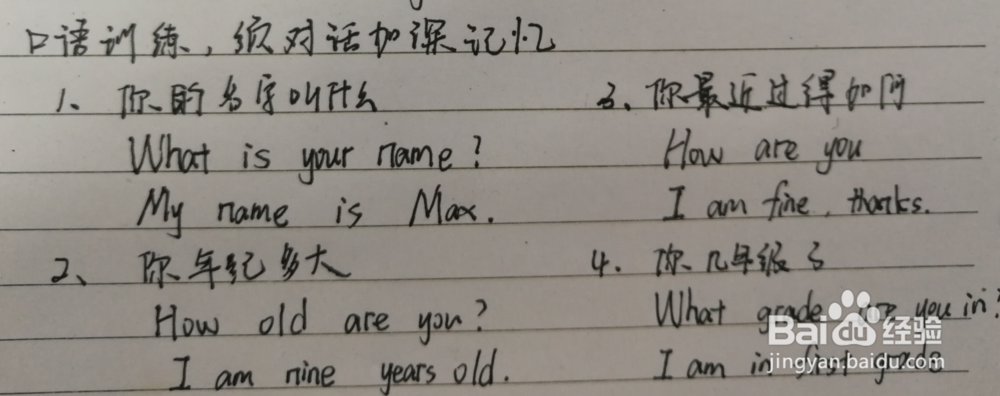 口语训练，编对话加深记忆
1、你的名字叫什么
What is your name?
My name is Max.
2、你年纪多大
How old are you?
I am nine years old.
3、你最近过得如何
How are you
I am fine, thanks.
4.你几年级了
What grade are you in?
I am in first grade
Baidu经验
jingyan.baidu.com